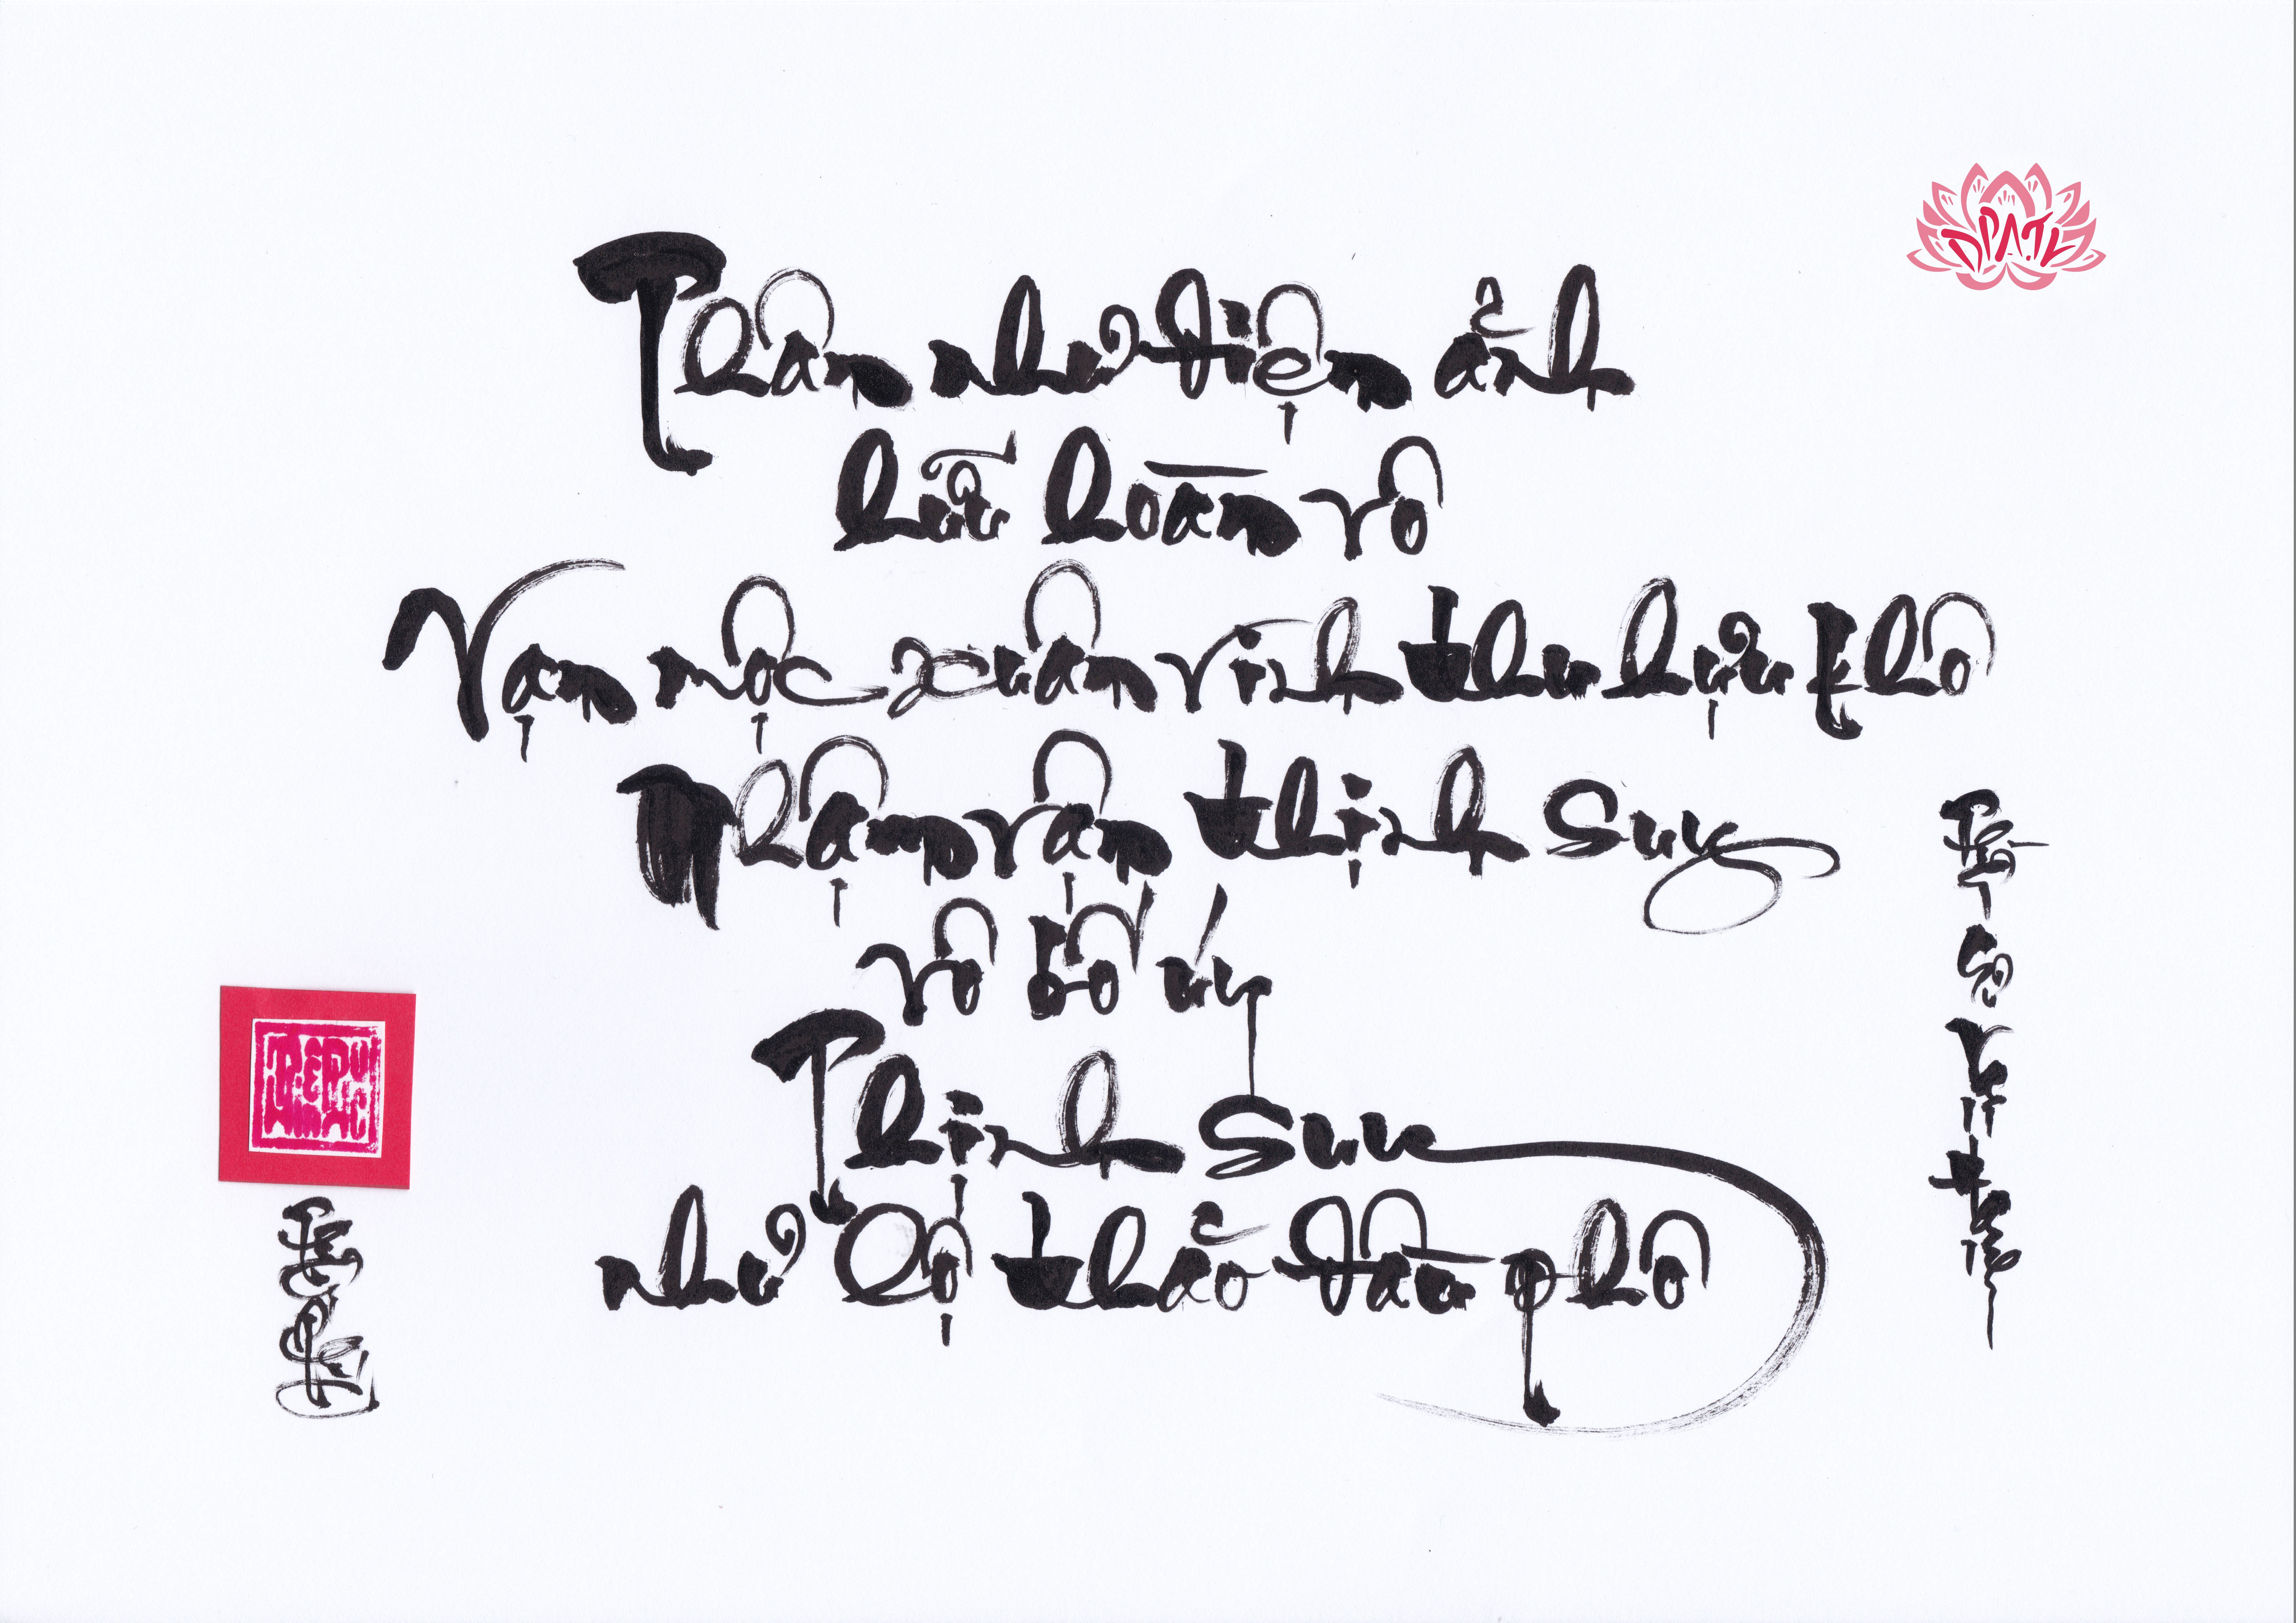 Thân như điện ảnh
hữu hoàn vô
Vạn mộc xuân vinh thu hựu khô
Nhậm vận thịnh suy
vô bố úy
Thịnh suy
như lộ thảo đầu phô